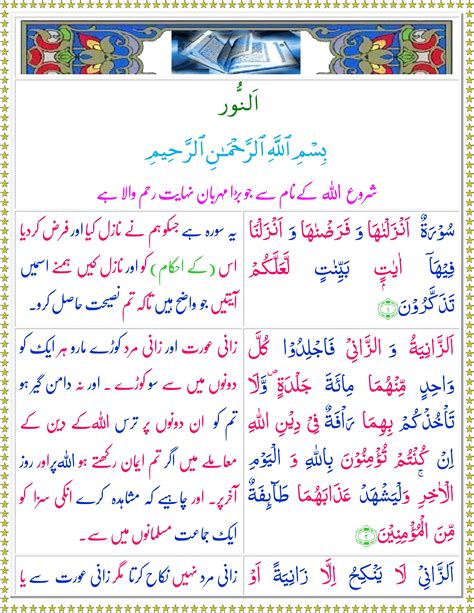 اَلنُّور
بِسْمِ اللّٰهِ الرَّحْمٰنِ الرَّحِیْمِ
شروع اللہ کے نام سے جو بڑا مہربان نہایت رحم والا ہے
سُوْرَةٌ اَنْزَلْنٰهَا وَ فَرَضْنٰهَا وَ اَنْزَلْنَا
فِیْهَاۤ اٰیٰتٍۭ بَیِّنٰتٍ لَّعَلَّكُمْ
تَذَكَّرُوْنَ﴿۱﴾
یہ سورہ ہے جسکو ہم نے نازل کیا اور فرض کردیا
اس (کے احکام) کو اور نازل کیں ہمنے اسمیں
آیتیں جو واضح ہیں تاکہ تم نصیحت حاصل کرو۔
اَلزَّانِیَةُ وَ الزَّانِیْ فَاجْلِدُوْا كُلَّ
وَاحِدٍ مِّنْهُمَا مِائَةَ جَلْدَةٍ ۪ وَّ لَا
تَاْخُذْكُمْ بِهِمَا رَاْفَةٌ فِیْ دِیْنِ اللّٰهِ
اِنْ كُنْتُمْ تُؤْمِنُوْنَ بِاللّٰهِ وَ الْیَوْمِ
الْاٰخِرِ ۚ وَ لْیَشْهَدْ عَذَابَهُمَا طَآىِٕفَةٌ
مِّنَ الْمُؤْمِنِیْنَ﴿۲﴾
زانی عورت اور زانی مرد کوڑے مارو ہر ایک کو
دونوں میں سے سو کوڑے ۔ اور نہ دامن گیر ہو
تم کو ان دونوں پر ترس اللہ کے دین کے
معاملے میں اگر تم ایمان رکھتے ہو اللہ پر اور روز
آخر پر۔ اور چاہیے کہ مشاہدہ کرے انکی سزا کو
ایک جماعت مسلمانوں میں سے ۔
اَلزَّانِیْ لَا یَنْكِحُ اِلَّا زَانِیَةً اَوْ
زانی مرد نہیں نکاح کرتا مگر زانی عورت سے یا